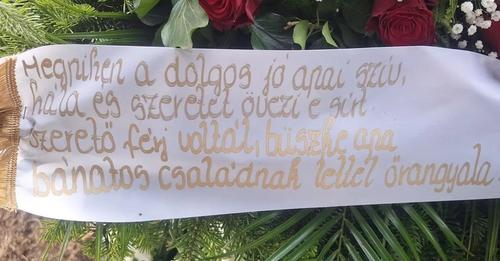 Megpihen a dolgos jó apai szív,
hála és szeretet övezi e sírt
szerető férj voltál, büszke apa
bánatos családnak lettél őrangyala